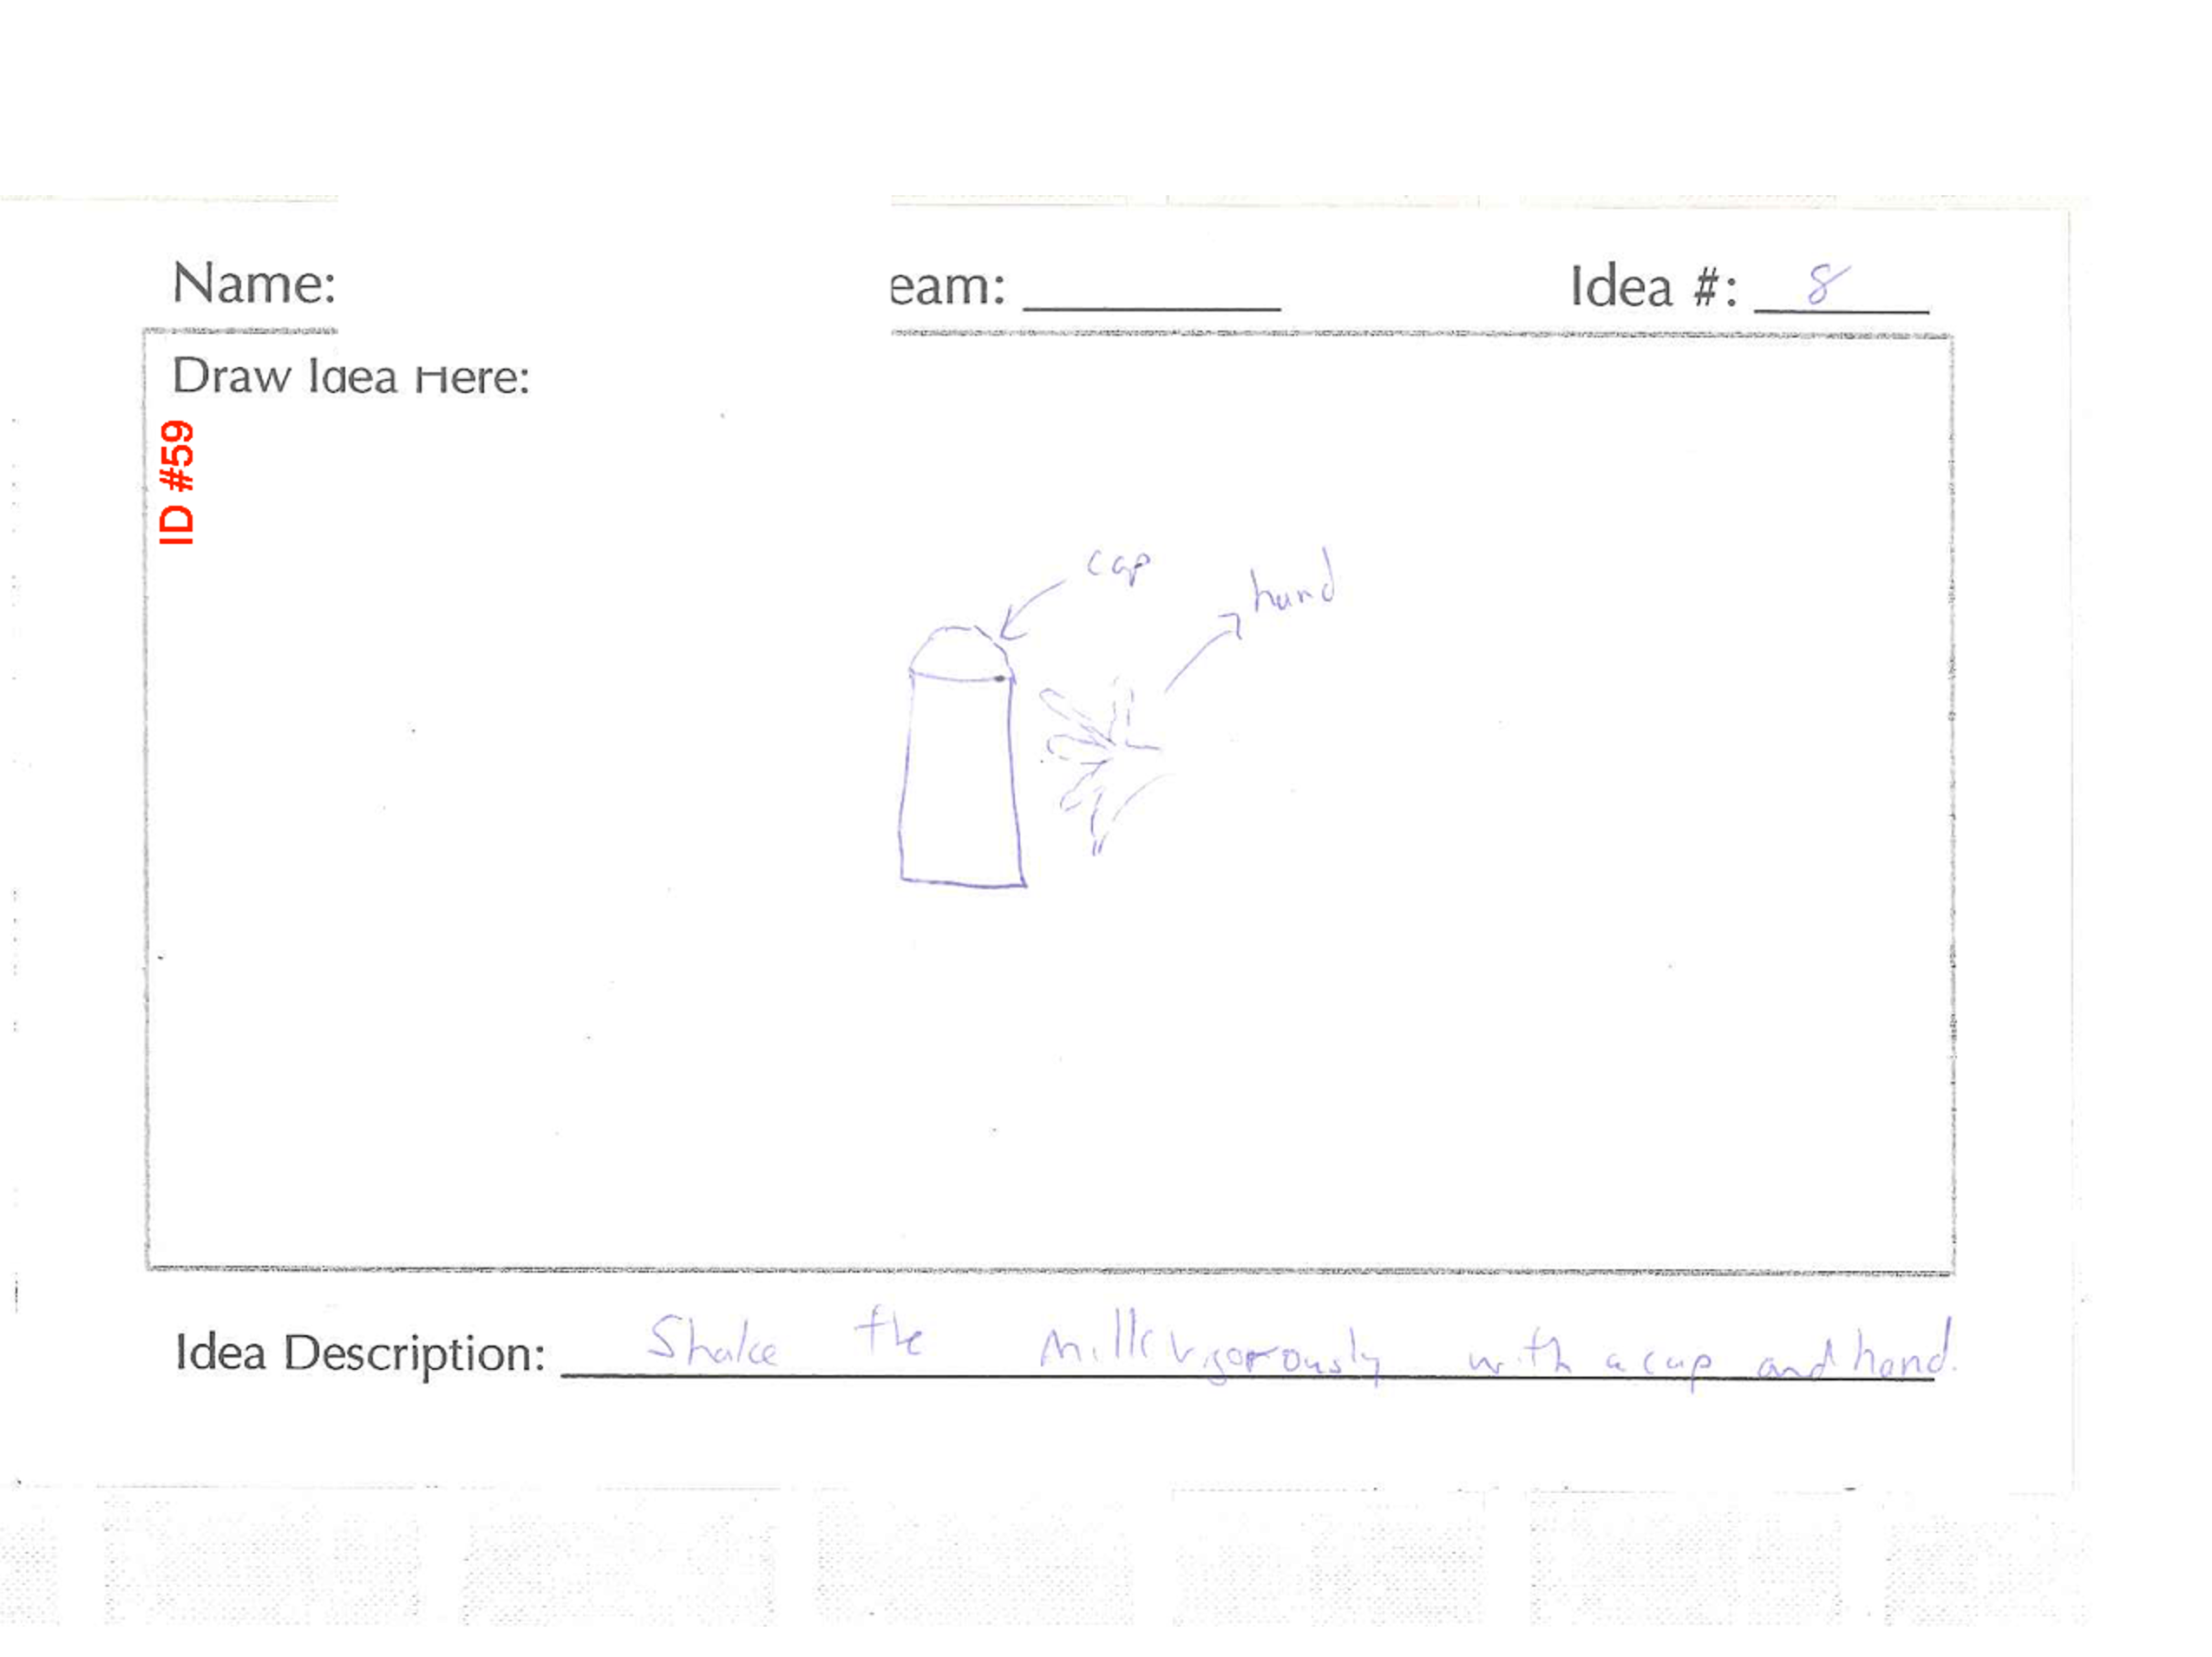 Name: eam: Idea #: 8
Draw Idea Here:
ID #59
cap
hand
Idea Description: Shake the milk vigorously with a cap and hand.